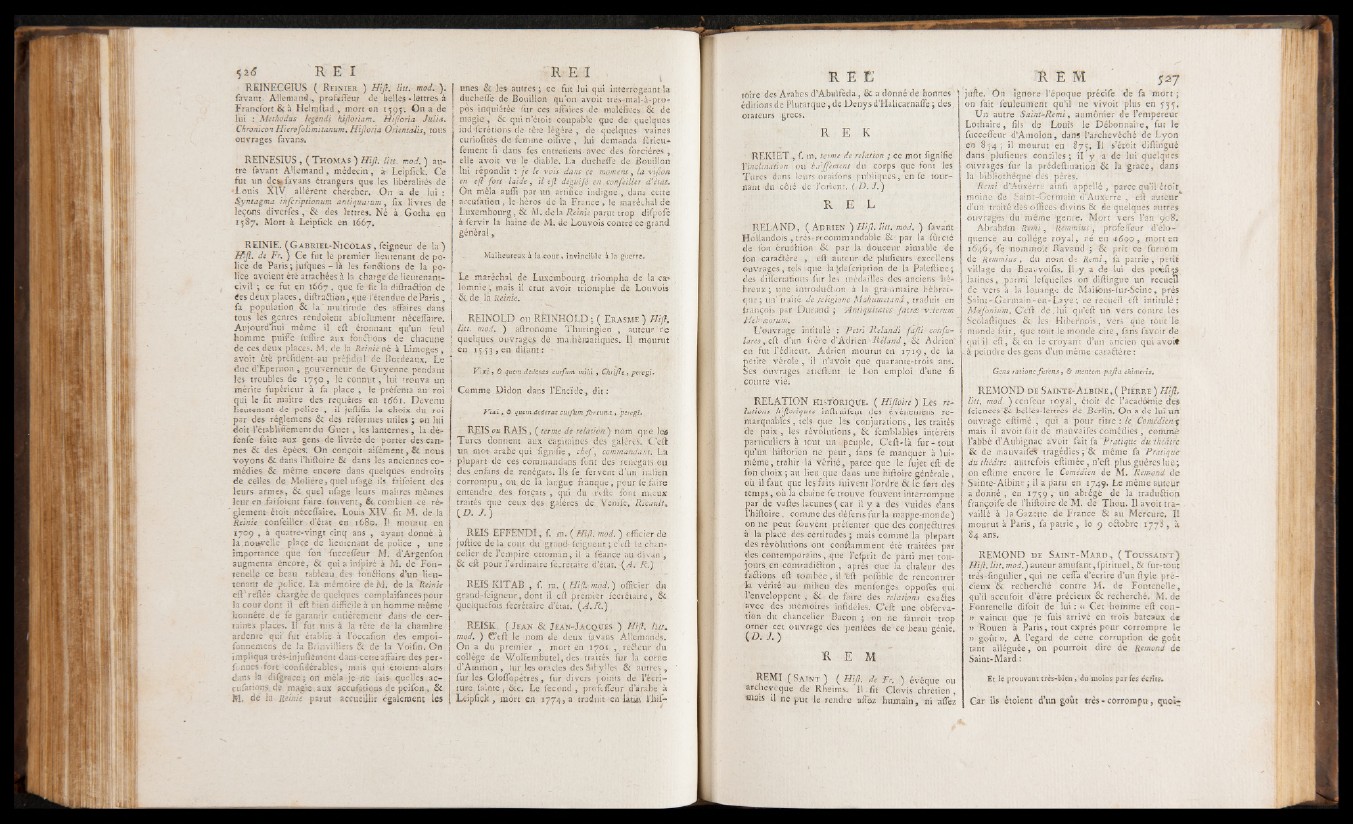 526 R E I
REINECGIUS ( REINIER ) Hist. litt. mod. ).
savant Allemand, professeur de belles-lettres à
Francfort & à Helmstad, mort en 1595. On a de
lui : Methodus legendi historiam. Historia Julia.
Chronicon Hierosolimitanum. Historia Orientalis, tous
ouvrages savans.
REINESIUS, ( THOMAS ) Hist. litt. mod. ) au-
tre savant Allemand, médecin, à Leipsick. Ce
fut un des savans étrangers que les libéralités de
Louis XIV allèrent chercher. On a de lui :
Syntagma inscriptionum antiquarum, six livres de
leçons diverses, & des lettres. Né à Gotha en
1587. Mort à Leipsick en 1667.
REINIE. ( GABRIEL-NICOLAS, seigneur de la )
Hist. de Fr. ) Ce fut le premier lieutenant de po-
lice de Paris ; jusques-là les fonctions de la po-
lice avoient été attachées à la charge de lieutenant-
civil ; ce fut en 1667, que se fit la distraction de
ces deux places, distraction, que l'étendue de Paris,
sa population & la multitude des affaires dans
tous les genres rendoient absolument nécessaire.
Aujourd'hui même il est étonnant qu'un seul
homme puisse suffire aux fonctions de chacune
de ces deux places. M. de la Reinie né à Limoges,
avoit été président au présidial de Bordeaux. Le
duc d'Epernon, gouverneur de Guyenne pendant
les troubles de 1650, le connut, lui trouva un
mérite supérieur à sa place, le présenta au roi
qui le fit maître des requêtes en 1661. Devenu
lieutenant de police, il justifia le choix du roi
par des réglemens & des réformes utiles ; on lui
doit l'établissement du Guet, les lanternes, la dé-
fense faite aux gens de livrée de porter des can-
nes & des épées. On conçoit aisément, & nous
voyons & dans l'histoire & dans les anciennes co-
médies & même encore dans quelques endroits
de celles de Molière, quel usage ils faisoient des
leurs armes, & quel usage leurs maîtres mêmes
leur en faisoient faire souvent, & combien ce ré-
glement étoit nécessaire. Louis XIV fit M. de la
Reinie conseiller d'état en 1680. Il mourut en
1709, à quatre-vingt cinq ans, ayant donné à
la nouvelle place de lieutenant de police, une
importance que son successeur M. d'Argenson
augmenta encore, & qui a inspiré à M. de Fon-
tenelle ce beau tableau des fonctions d'un lieu-
tenant de police. La mémoire de M. de la Reinie
est restée chargée de quelques complaisances pour
la cour dont il est bien difficile à un homme même
honnête de se garantir entièrement dans de cer-
taines places. Il fut mis à la tête de la chambre
ardente qui fut établie à l'occasion des empoi-
sonnemens de la Brinvilliers & de la Voisin. On
impliqua très-injustement dans cette affaire des per-
sonnes fort considérables, mais qui étoient alors
dans la disgrace ; on mêla je ne sais quelles ac-
cusations de magie aux accusations de poison, &
M. de la Reinie parut accueillir également les
R E I
unes & les autres ; ce fut lui qui interrogeant la
duchesse de Bouillon qu'on avoit très-mal-à-pro-
pos inquiétée sur ces affaires de maléfices & de
magie, & qui n'étoit coupable que de quelques
indiscrétions de tête légère, de quelques vaines
curiosités de femme oisive, lui demanda sérieu-
sement si dans ses entretiens avec des sorcières,
elle avoit vu le diable. La duchesse de Bouillon
lui répondit : je le vois dans ce moment, la vision
en est fort laide, il est déguisé en conseiller d'état.
On mêla aussi par un artifice indigne, dans cette
accusation, le héros de la France, le maréchal de
Luxembourg, & M. de la Reinie parut trop disposé
à servir la haine de M. de Louvois contre ce grand
général,
Malheureux à la cour, invincible à la guerre.
Le maréchal de Luxembourg triompha de la ca-
lomnie ; mais il crut avoir triomphé de Louvois
& de la Reinie.
REINOLD ou REINHOLD ; ( ERASME ) Hist.
litt. mod. ) astronome Thuringien, auteur de
quelques ouvrages de mathématiques. Il mourut
en 1553, en disant :
Vixi, & quem dederas cursum mihi, Christe, peregi.
Comme Didon dans l'Enéide, dit :
Vixi, & quem dederat cursum fortuna, peregi.
REIS ou RAIS, ( terme de relation ) nom que les
Turcs donnent aux capitaines des galères. C'est
un mot arabe qui signifie, chef, commandant. La
plupart de ces commandans sont des renégats ou
des enfans de renégats. Ils se servent d'un italien
corrompu, ou de la langue franque, pour se faire
entendre des forçats, qui du reste sont mieux
traités que ceux des galères de Venise, Ricaut,
( D. J. )
REIS EFFENDI, s. m. ( Hist. mod. ) officier de
justice de la cour du grand-seigneur ; c'est le chan-
celier de l'empire ottoman, il a séance au divan,
& est pour l'ordinaire secretaire d'état. ( A. R. )
REIS KITAB, s. m. ( Hist. mod. ) officier du
grand-seigneur, dont il est premier secrétaire, &
quelquefois secrétaire d'état. (A. R.)
REISK. ( JEAN & JEAN-JACQUES ) Hist. litt.
mod. ) C'est le nom de deux savans Allemands.
On a du premier, mort en 1701, recteur du
collège de Wolfembutel, des traités sur la corne
d'Ammon, sur les oracles des Sibylles & autres,
sur les Glossopètres, sur divers points de l'écri-
ture sainte, &c. Le second, professeur d'arabe à
Leipsick, mort en 1774, a traduit en latin l'his-
R E L
toire des Arabes d'Abulféda, & a donné de bonnes
éditions de Plutarque, de Denys d'Halicarnasse ; des
orateurs grecs.
R E K
REKIET, s. m. terme de relation ; ce mot signifie
l'inclination ou baissement du corps que font les
Turcs dans leurs oraisons publiques, en se tour-
nant du côté de l'orient. ( D. J. )
R E L
RELAND, ( ADRIEN ) Hist. litt. mod. ) savant
Hollandois, très-recommandable & par la sûreté
de son érudition & par la douceur aimable de
son caractère, est auteur de plusieurs excellens
ouvrages, tels que la description de la Palestine ;
des dissertations sur les médailles des anciens Hé-
breux ; une introduction à la grammaire hébraï-
que ; un traité de religione Mahumetanâ, traduit en
françois par Durand ; Antiquitates sacræ veterum
Hebræorum.
L'ouvrage intitulé : Petri Relandi fasti consu-
lares, est d'un frère d'Adrien Réland, & Adrien
en fut l'éditeur. Adrien mourut en 1719, de la
petite vérole, il n'avoit que quarante-trois ans.
Ses ouvrages attestent le bon emploi d'une si
courte vie.
RELATION HISTORIQUE. ( Histoire ) Les re-
lations historiques instruisent des événemens re-
marquables, tels que les conjurations, les traités
de paix, les révolutions, & semblables intérêts
particuliers à tout un peuple. C'est-là sur-tout
qu'un historien ne peut, sans se manquer à lui-
même, trahir la vérité, parce que le sujet est de
son choix ; au lieu que dans une histoire générale,
où il faut que les faits suivent l'ordre & le sort des
temps, où la chaîne se trouve souvent interrompue
par de vastes lacunes ( car il y a des vuides dans
l'histoire, comme des déserts sur la mappe-monde )
on ne peut souvent présenter que des conjectures
à la place des certitudes ; mais comme la plupart
des révolutions ont constamment été traitées par
des contemporains, que l'esprit de parti met tou-
jours en contradiction, après que la chaleur des
factions est tombée, il est possible de rencontrer
la vérité au milieu des mensonges opposés qui
l'enveloppent, & de faire des relations exactes
avec des memoires infidèles. C'est une observa-
tion du chancelier Bacon ; on ne sauroit trop
orner cet ouvrage des pensées de ce beau génie.
( D. J. )
R E M
REMI ( SAINT ) ( Hist. de Fr. ) évêque ou
archevêque de Rheims. Il fit Clovis chrétien,
mais il ne put le rendre assez humain, ni assez
R E M 527
juste. On ignore l'époque précise de sa mort ;
on sait seulement qu'il ne vivoit plus en 535.
Un autre Saint-Remi, aumônier de l'empereur
Lothaire, fils de Louis le Débonnaire, fut le
successeur d'Amolon, dans l'archevêché de Lyon
en 854 ; il mourut en 875. Il s'étoit distingué
dans plusieurs conciles ; il y a de lui quelques
ouvrages sur la prédestination & la grace, dans
la bibliothèque des pères.
Remi d'Auxerre ainsi appellé, parce qu'il étoit
moine de Saint-Germain d'Auxerre, est auteur
d'un traité des offices divins & de quelques autres
ouvrages du même genre. Mort vers l'an 908.
Abraham Remi, Remmius, professeur d'élo-
quence au collège royal, né en 1600, mort en
1646, se nommoit Ravaud ; & prit ce surnom
de Remmius, du nom de Remi, sa patrie, petit
village du Beauvoisis. Il y a de lui des poësies
latines, parmi lesquelles on distingue un recueil
de vers à la louange de Maisons-sur-Seine, près
Saint-Germain-en-Laye ; ce recueil est intitulé :
Mæsonium. C'est de lui qu'est un vers contre les
Scolastiques & les Hibernois, vers que tout le
monde sait, que tout le monde cite, sans savoir de
qui il est, & en le croyant d'un ancien qui avoit
à peindre des gens d'un même caractère :
Gens ratione furens, & mentem pasta chimæris.
REMOND DE SAINTE-ALBINE, ( PIERRE ) Hist.
litt. mod. ) censeur royal, étoit de l'académie des
sciences & belles-lettres de Berlin. On a de lui un
ouvrage estimé, qui a pour titre : le Comédien ;
mais il avoit fait de mauvaises comédies, comme
l'abbé d'Aubignac avoit fait sa Pratique du théâtre
& de mauvaises tragédies ; & même sa Pratique
du théâtre autrefois estimée, n'est plus guères lue ;
on estime encore le Comédien de M. Remond de
Sainte-Albine ; il a paru en 1749. Le même auteur
a donné, en 1759, un abrégé de la traduction
françoise de l'histoire de M. de Thou. Il avoit tra-
vaillé à la Gazette de France & au Mercure. Il
mourut à Paris, sa patrie, le 9 octobre 1778, à
84 ans.
REMOND DE SAINT-MARD, ( TOUSSAINT )
Hist. litt. mod. ) auteur amusant, spirituel, & sur-tout
très-singulier, qui ne cessa d'écrire d'un style pré-
cieux & recherché contre M. de Fontenelle,
qu'il accusoit d'être précieux & recherché. M. de
Fontenelle disoit de lui : « Cet homme est con-
» vaincu que je suis arrivé en trois bateaux de
» Rouen à Paris, tout exprès pour corrompre le
» goût ». A l'égard de cette corruption de goût
tant alléguée, on pourroit dire de Remond de
Saint-Mard :
Et le prouvant très-bien, du moins par ses écrits.
Car ils étoient d'un goût très-corrompu, quoi-